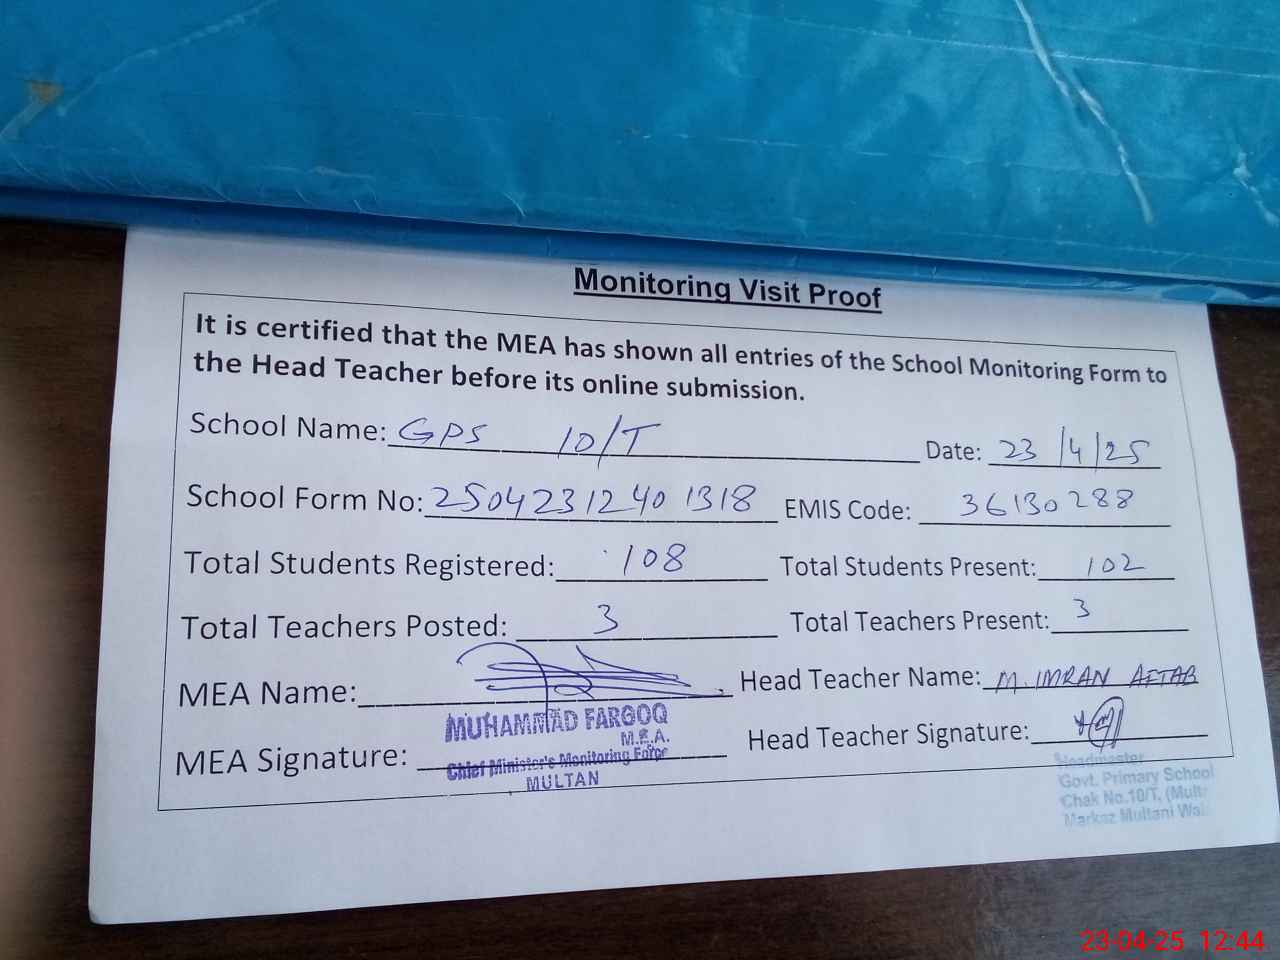 Monitoring Visit Proof
It is certified that the MEA has shown all entries of the School Monitoring Form to
the Head Teacher before its online submission.
School Name: GPS 10/T Date: 23/4/25
School Form No: 2504231240 1318 EMIS Code: 36130288
Total Students Registered: 108 Total Students Present: 102
Total Teachers Posted: 3 Total Teachers Present: 3
MEA Name: Head Teacher Name: M. IMRAN AFTAB
MUHAMMAD FAROOQ
M.E.A.
MEA Signature: Head Teacher Signature:
Chief Minister's Monitoring Force
MULTAN
Headmaster
Govt. Primary School
Chak No.10/T, (Mult
Markaz Multani Wa
23-04-25 12:44